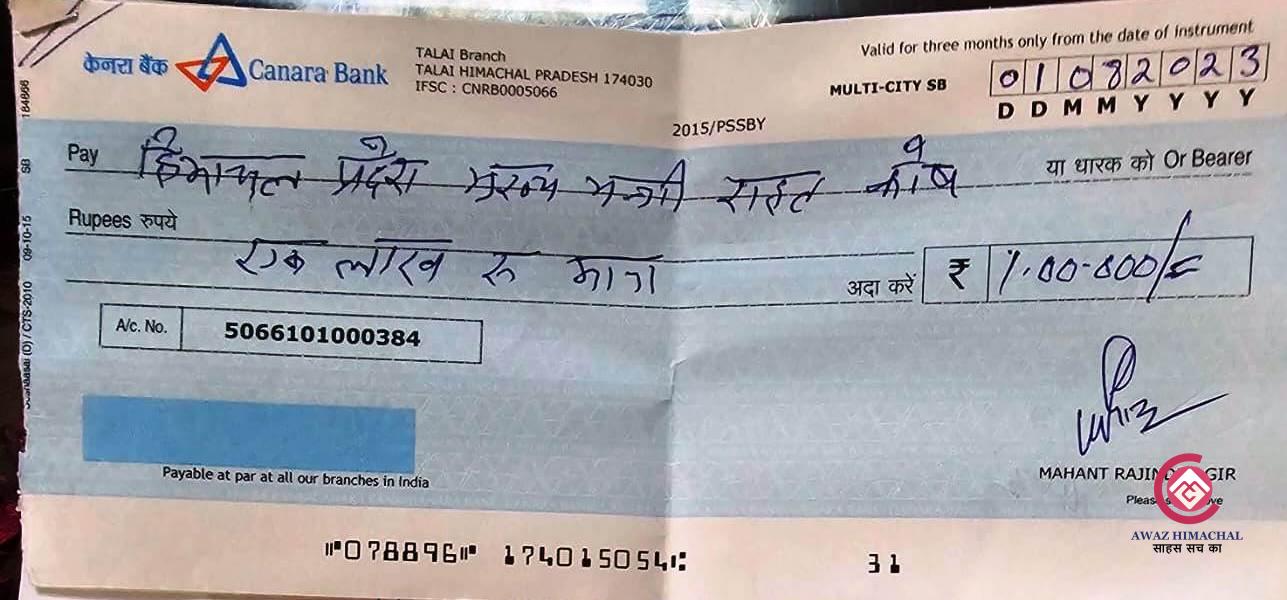 केनरा बैंक Canara Bank
TALAI Branch
TALAI HIMACHAL PRADESH 174030
IFSC : CNRB0005066
Valid for three months only from the date of Instrument
MULTI-CITY SB
01082023
D D M M Y Y Y Y
2015/PSSBY
Pay हिमाचल प्रदेश मुख्य मन्त्री राहत कोष या धारक को Or Bearer
Rupees रुपये
एक लाख रु मात्र
अदा करें ₹ 1.00-000/-
A/c. No. 5066101000384
Payable at par at all our branches in India
MAHANT GIR
078896 174015054 31
184866
SB
09-10-15
/ CTS-2010
AWAZ HIMACHAL
साहस सच का